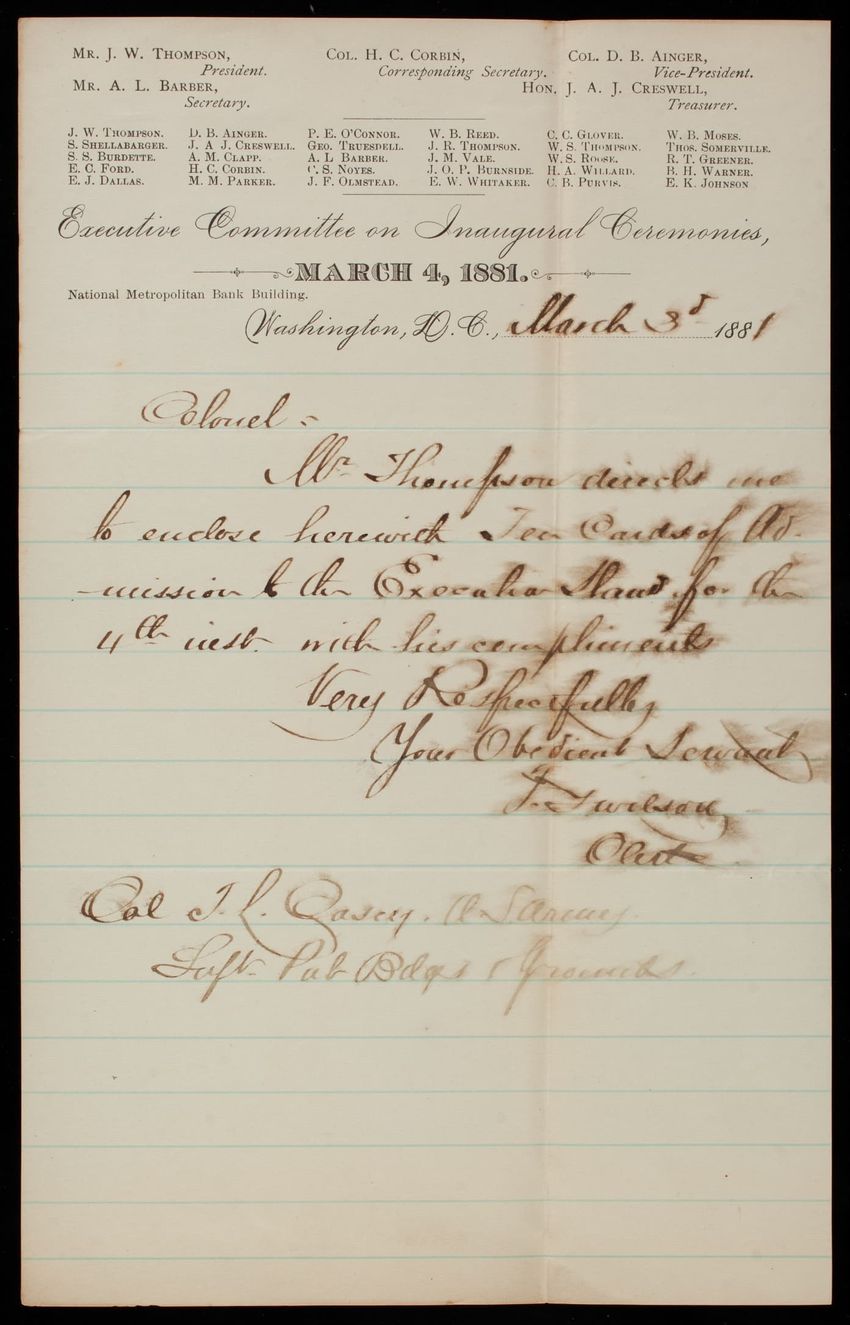 Mr. J. W. Thompson, Col. H. C. Corbin, Col. D. B. Ainger,
President. Corresponding Secretary. Vice-President.
Mr. A. L. Barber, Hon. J. A. J. Creswell,
Secretary. Treasurer.
J. W. Thompson. D. B. Ainger. P. E. O'Connor. W. B. Reed. C. C. Glover. W. B. Moses.
S. Shellabarger. J. A J. Creswell. Geo. Truesdell. J. R. Thompson. W. S. Thompson. Thos. Somerville.
S. S. Burdette. A. M. Clapp. A. L Barber. J. M. Vale. W. S. Roose. R. T. Greener.
E. C. Ford. H. C. Corbin. C. S. Noyes. J. O. P. Burnside. H. A. Willard. B. H. Warner.
E. J. Dallas. M. M. Parker. J. F. Olmstead. E. W. Whitaker. C. B. Purvis. E. K. Johnson
Executive Committee on Inaugural Ceremonies,
MARCH 4, 1881.
National Metropolitan Bank Building.
Washington, D. C., March 3d 1881
Colonel -
Mr. Thompson directs me
to enclose herewith Ten Cards of Ad-
-mission to the Executive Stand for the
4th inst. with his compliments
Very Respectfully
Your Obedient Servant
Clerk
Col T. L. Casey. U S Army.
Supt. Pub Bdgs & Grounds.